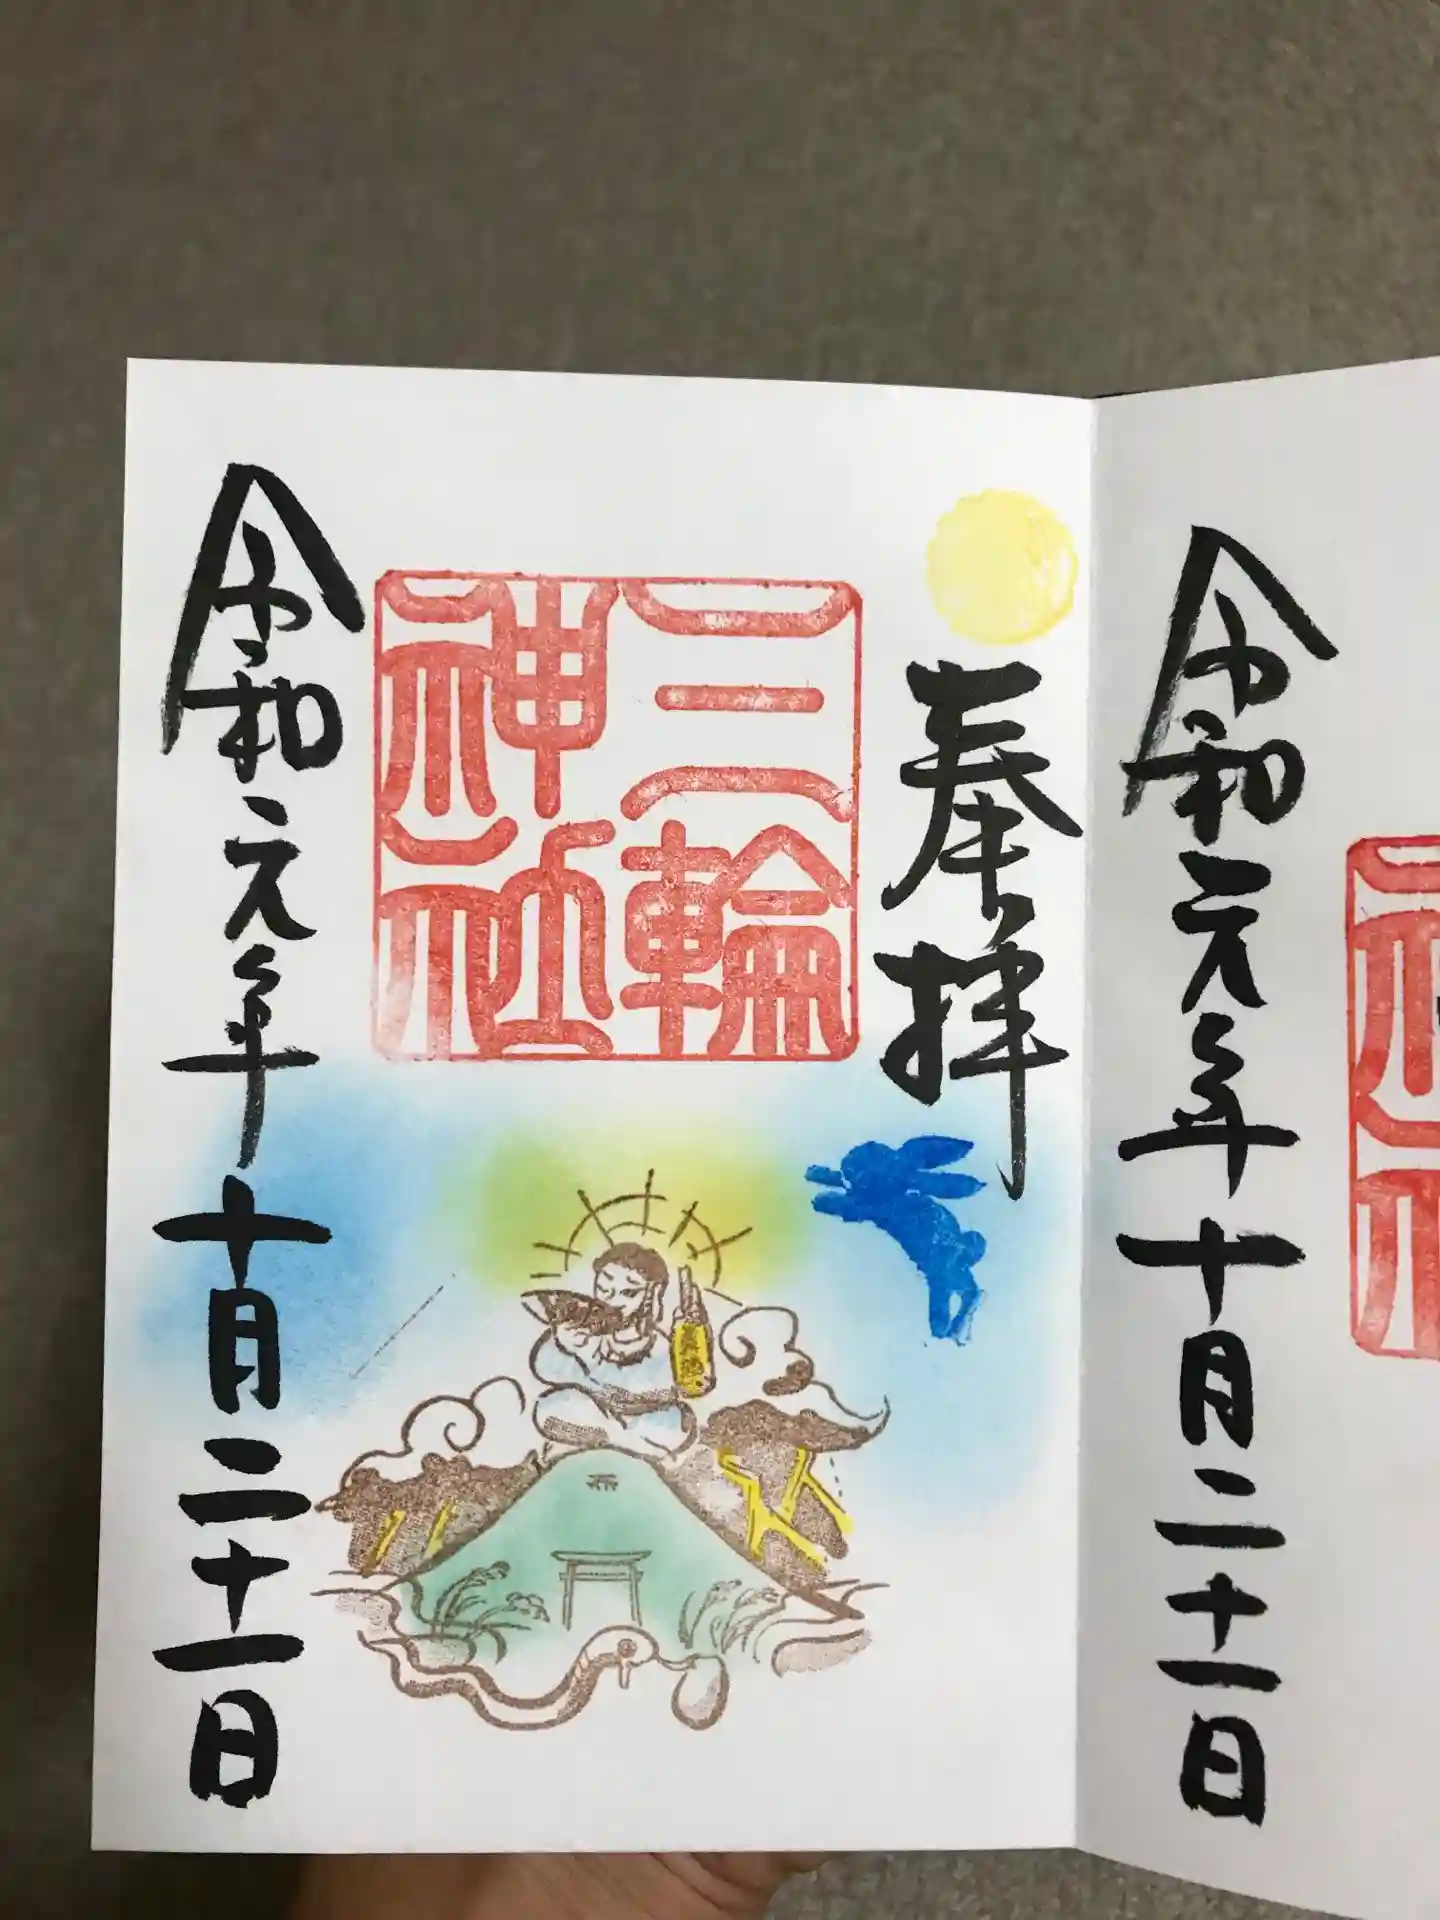 令和元年十月二十一日
奉拝
三輪
神社
令和元年十月二十一日